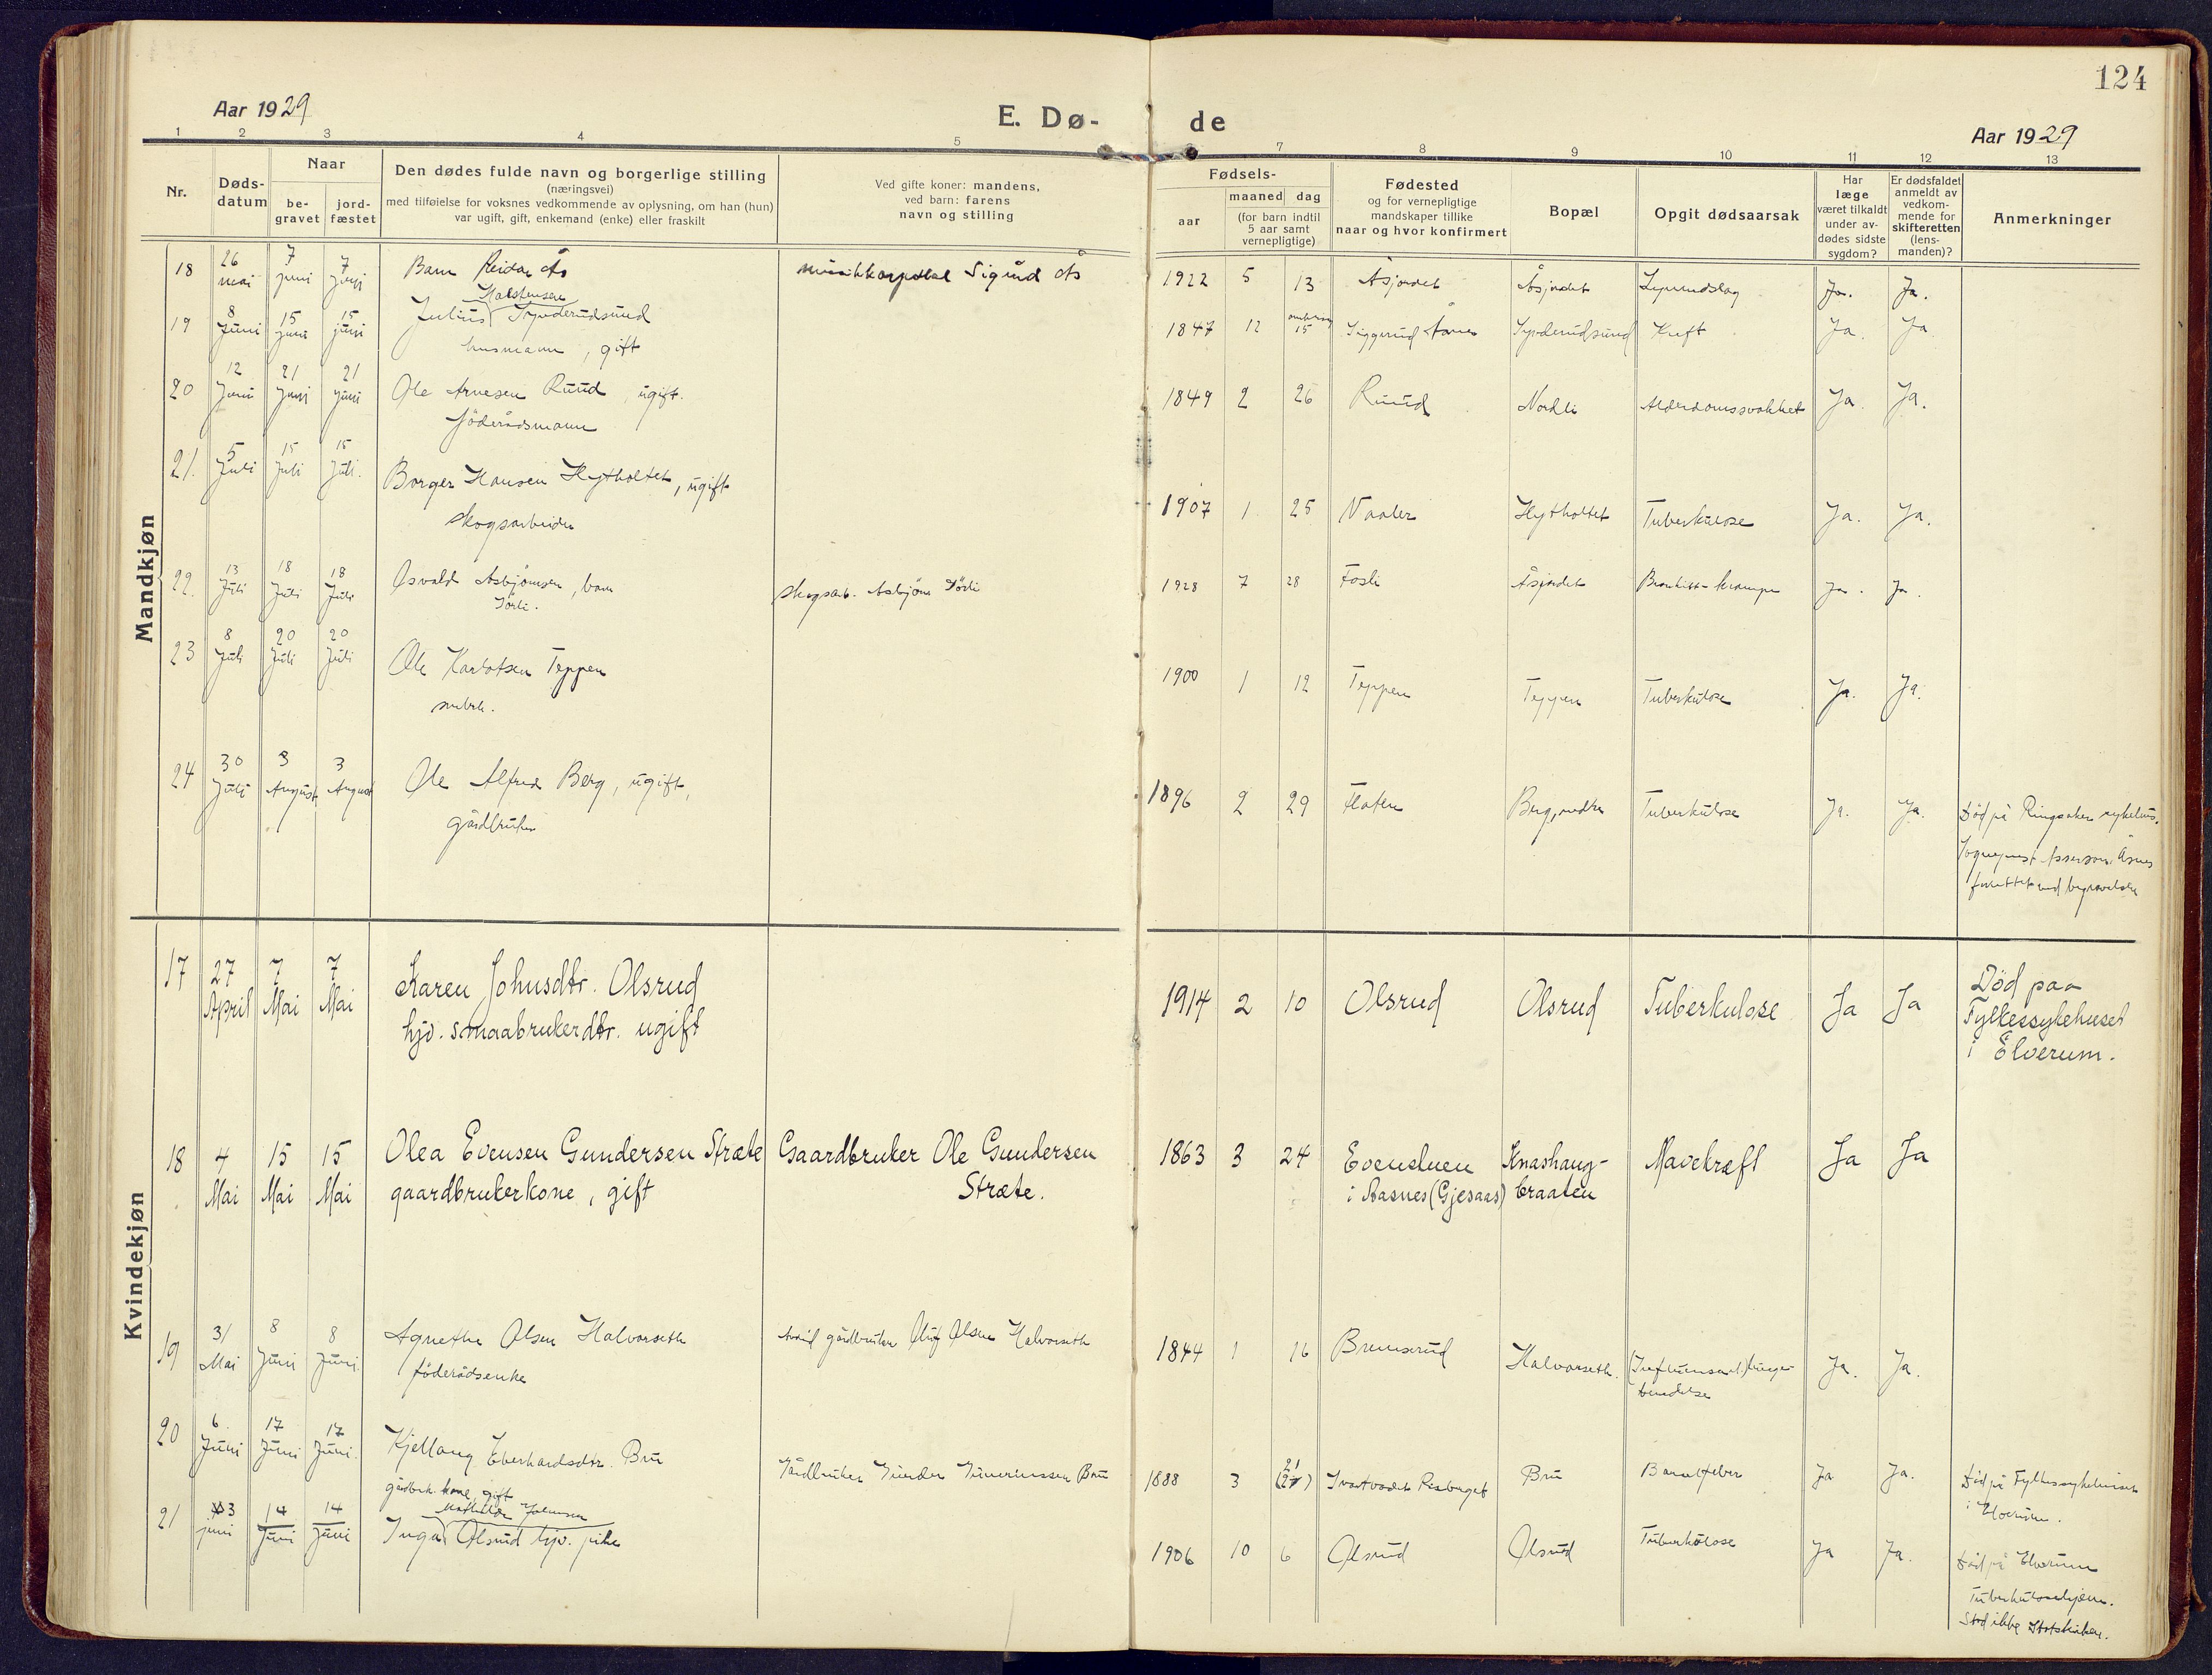 124
Aar 1929
E. Dø-
de
Aar 1929
1 2 3 4 5 7 8 9 10 11 12 13
Nr.
Døds-
datum
Naar
be-
gravet
jord-
fæstet
Den dødes fulde navn og borgerlige stilling
(næringsvei)
med tilføielse for voksnes vedkommende av oplysning, om han (hun)
var ugift, gift, enkemand (enke) eller fraskilt
Ved gifte koner: mandens,
ved barn: farens
navn og stilling
Fødsels-
aar
maaned dag
(for barn indtil
5 aar samt
vernepligtige)
Fødested
og for vernepligtige
mandskaper tillike
naar og hvor konfirmert
Bopæl
Opgit dødsaarsak
Har
læge
været tilkaldt
under av-
dødes sidste
sygdom?
Er dødsfaldet
anmeldt av
vedkom-
mende for
skifteretten
(lens-
manden)?
Anmerkninger
Mandkjøn
18 26 mai 7 juni 7 juni Barn Reidar Ås Sigurd Ås 1922 5 13 Åsjordet Åsjordet Ja. Ja.
Halstensen
19 8 Juni 15 juni 15 juni Julius 1847 12 15 Kreft Ja. Ja
husmann, gift
20 12 Juni 21 Juni 21 Juni Ole Arnesen Ruud, ugift. 1849 2 26 Ruud Nordli Alderdomssvakhet Ja Ja.
föderådsmann
21. 5 Juli 15 Juli 15 Juli. Borger Hansen Hytholtet, ugift 1907 1 25 Vaaler Hytholtet Tuberkulose Ja. Ja.
skogsarbeider
22. 13 Juli 18 Juli 18 Juli Osvald Asbjörnsen, barn skogsarb. Asbjörn 1928 7 28 Fosli Åsjordet Ja. Ja.
23 8 Juli 20 Juli 20 Juli Ole Karlotsen Teppen 1900 1 12 Teppen Teppen Tuberkulose Ja. Ja.
24 30 Juli 3 August 3 August Ole Alfred Berg, ugift, 1896 2 29 Flaten Berg, nedre Tuberkulose Ja. Ja. Död på Ringsaker sykehus.
gårdbruker
Sogneprest Asserson, Åsnes
forrettet ved begravelsen
Kvindekjøn
17 27 April 7 Mai 7 Mai Karen Johnsdtr. Olsrud 1914 2 10 Olsrud Olsrud Tuberkulose Ja Ja Død paa
hjv. smaabrukerdtr. ugift Fylkessykehuset
i Elverum.
18 4 Mai 15 Mai 15 Mai Olea Evensen Gundersen Stræte Gaardbruker Ole Gundersen 1863 3 24 Evenstuen Knashaug- Mavekræft Ja Ja
gaardbrukerkone, gift Stræte. i Aasnes (Gjesaas) braaten
19 31 Mai 8 Juni 8 Juni. Agnethe Olsen Halvorseth gårdbruker Oluf Olsen Halvorseth 1844 1 16 Bruserud Halvorseth. Ja. Ja.
föderådsenke
20 6 Juni 17 Juni 17 Juni. Kjellaug Eberhardsdtr. Bru Gårdbruker Bru 1888 3 21 Bru Barselfeber Ja Ja. Död på Fylkessykehuset
gårdbr. kone, gift i Elverum.
Mathilde Johnsen
21 3 juni 14 Juni 14 Juni Inga Olsrud hjv. pike 1906 10 6 Olsrud Olsrud Tuberkulose Ja Ja. Död på Elverum
Tuberkulosehjem.
Stod ikke i Statskirken.